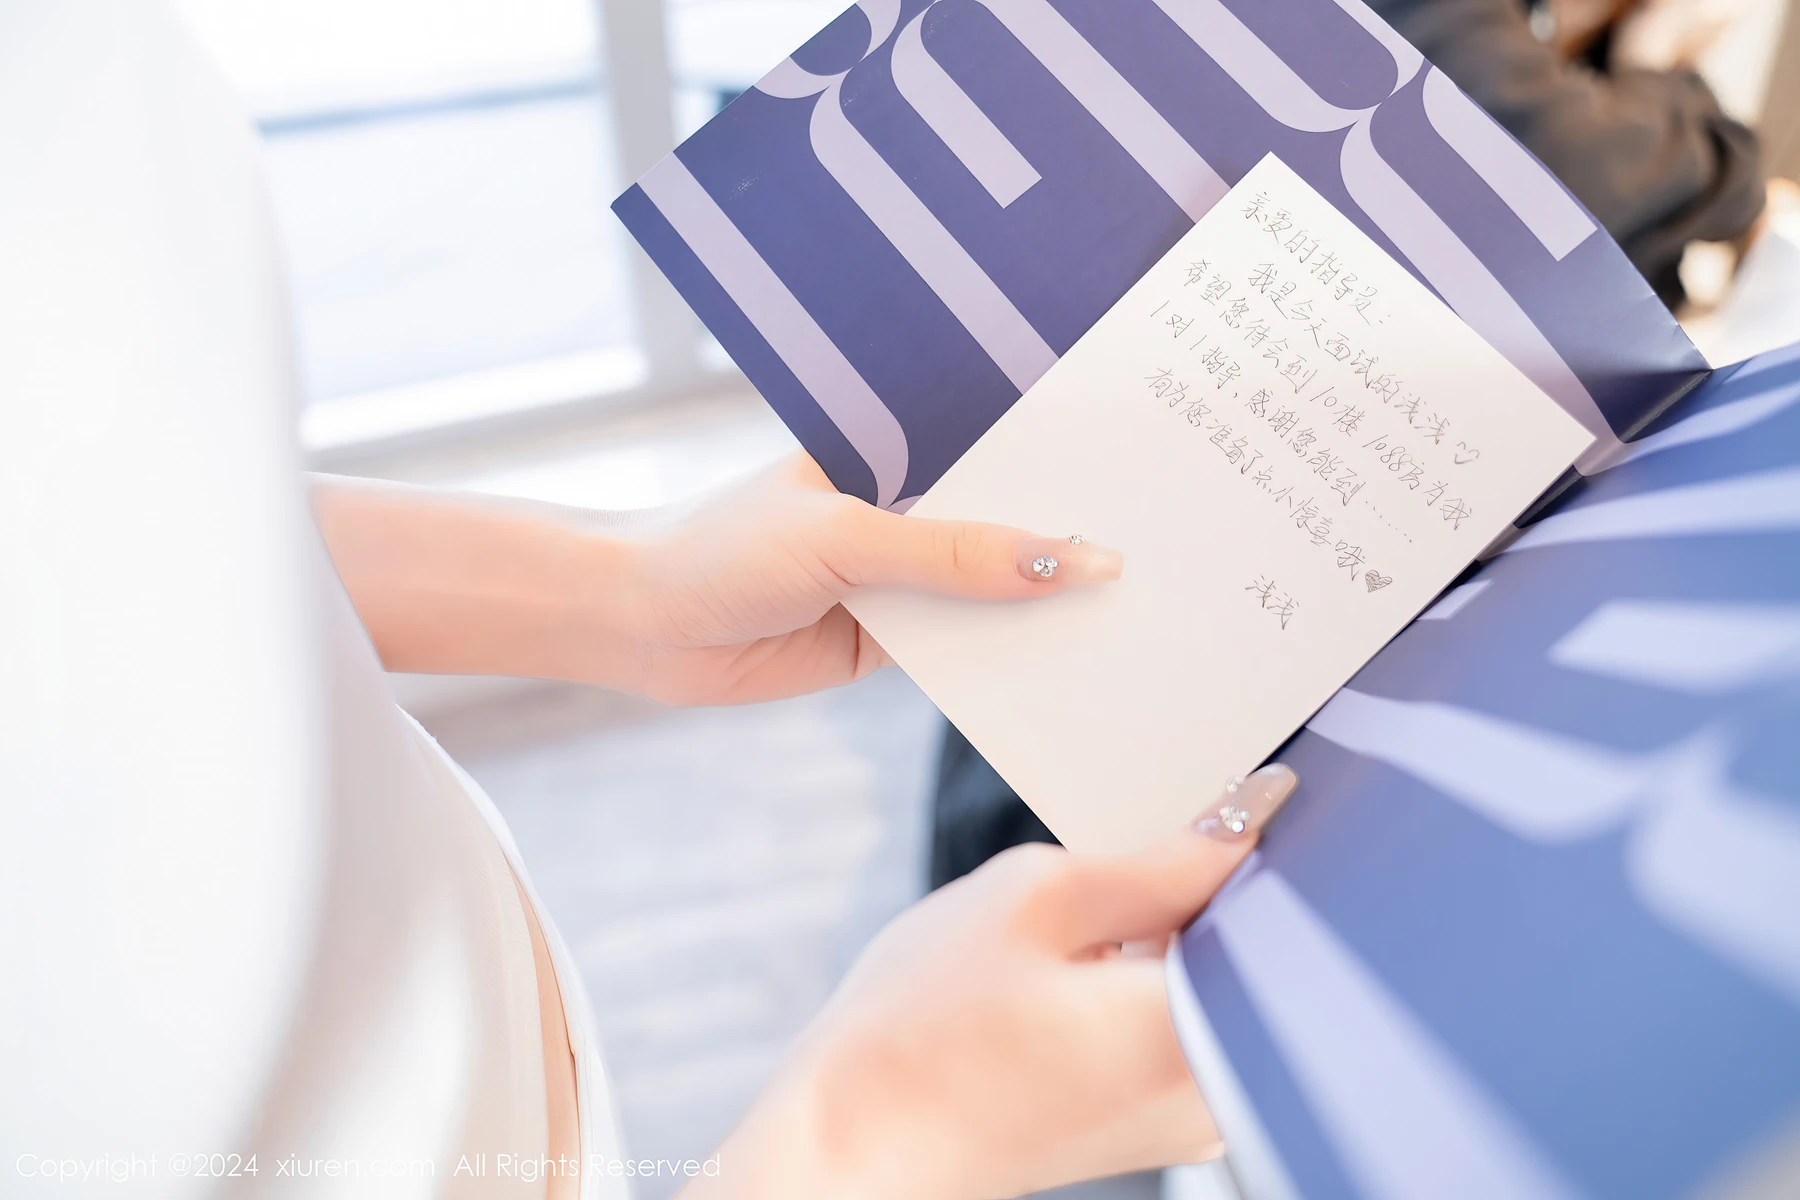 亲爱的指导员：
我是今天面试的浅浅
希望您待会到10楼1088房为我
1对1指导，感谢您能到……
有为您准备了点小惊喜哦♥
浅浅
Copyright @2024 xiuren.com All Rights Reserved